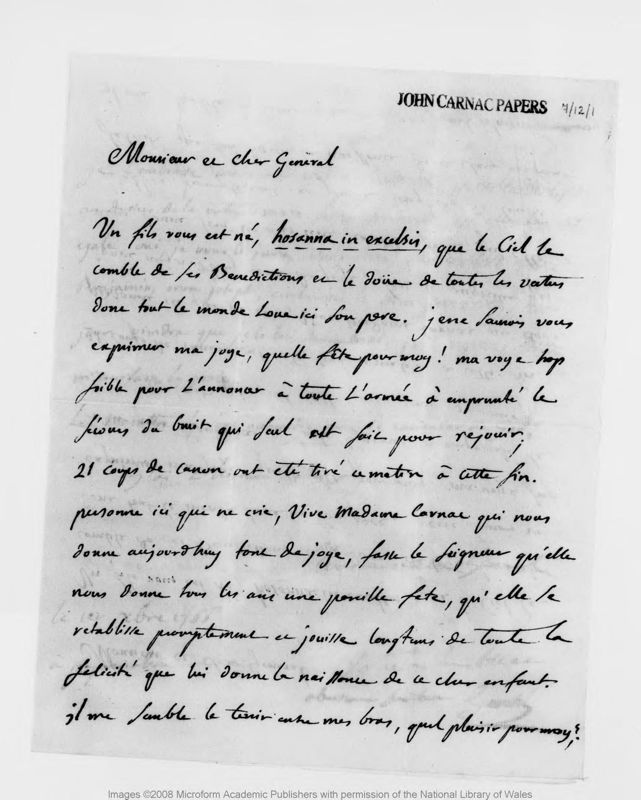 JOHN CARNAC PAPERS 7/12/1
Monsieur et cher Général
Un fils vous est né, hosanna in excelsis, que le Ciel le
comble de ses Benedictions et le doüe de toutes les vertus
dont tout le monde Loue ici son pere. je ne saurois vous
exprimer ma joye, quelle fête pour moy! ma voye trop
foible pour L'annoncer à toute L'armée à emprunté le
secours du bruit qui seul est fait pour rejouir;
21 coups de canon ont eté tiré ce matin à cette fin.
personne ici qui ne crie, Vive Madame Carnac qui nous
donne aujourd'huy tant de joye, fasse le Seigneur qu'elle
nous donne tous les ans une pareille fete, qu'elle se
retablisse promptement et jouisse longtems de toute la
felicité que lui donne la naissance de ce cher enfant.
il me semble le tenir entre mes bras, quel plaisir pour moy!
Images ©2008 Microform Academic Publishers with permission of the National Library of Wales